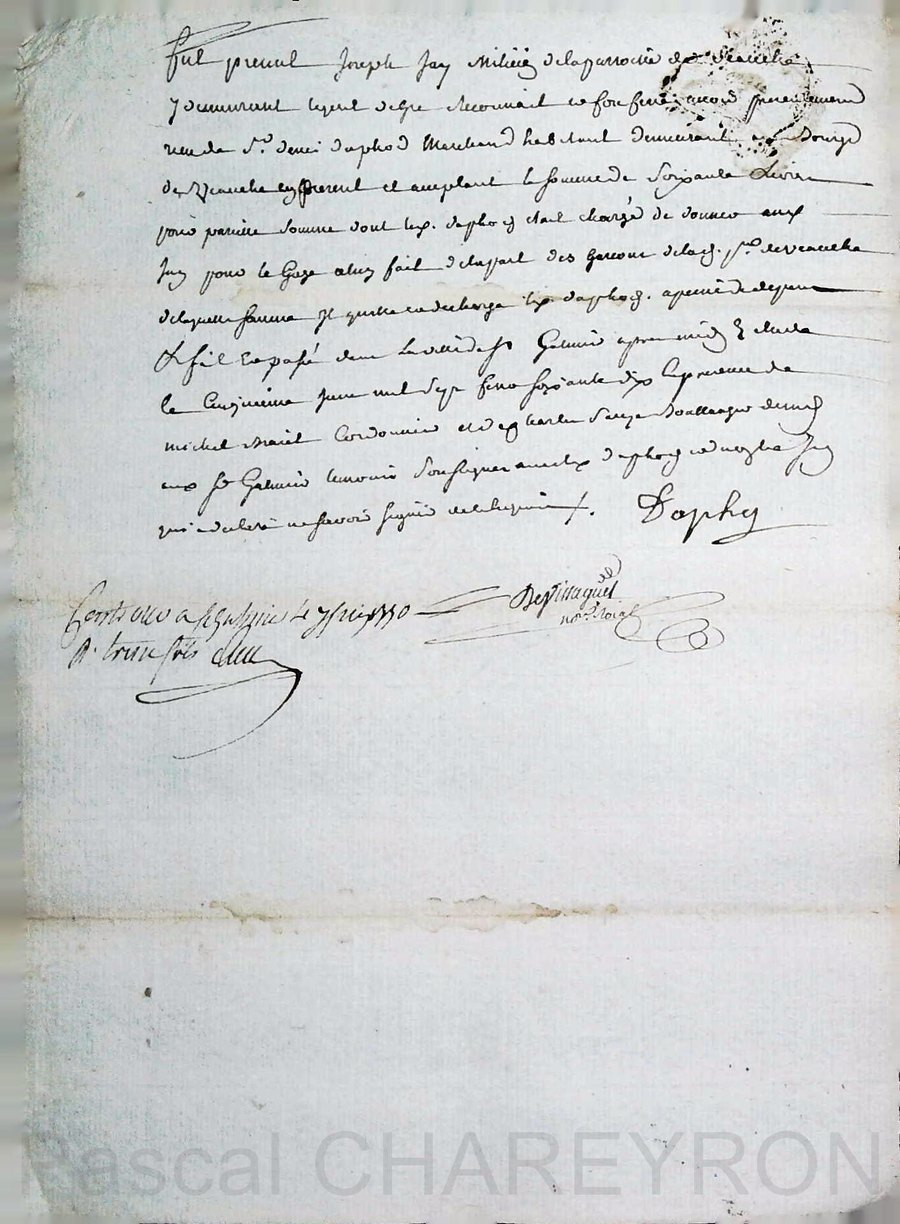 Fut present Joseph Jay Milicien de la parroisse de Veauche
y demeurant lequel de gré reconnait et confesse avoir presentement
receu de Sr. denis daphod Marchand habitant demeurant au Bourg
de Veauche cy present et acceptant la somme de soixante Livres
pour pareille somme dont led. daphod etait chargé de donner aud.
Jay pour le Gage a luy fait de la part des Garcons de lad. psse. de Veauche
de laquelle somme il quitte et decharge led. daphod. a peine de depens
fait et passé dans la ville de St Galmier apres midy
le cinquieme juin mil sept cens soixante dix En presence de
michel Cordonnier et de Charles Boullanger demt.
aud. St Galmier temoins soussignés avec led. daphod et non led. Jay
qui a declaré ne savoir signer de ce requis /.
Daphod
Controllé a St Galmier le 7 juin 1770
R. treize sols
not. Roial
Pascal CHAREYRON